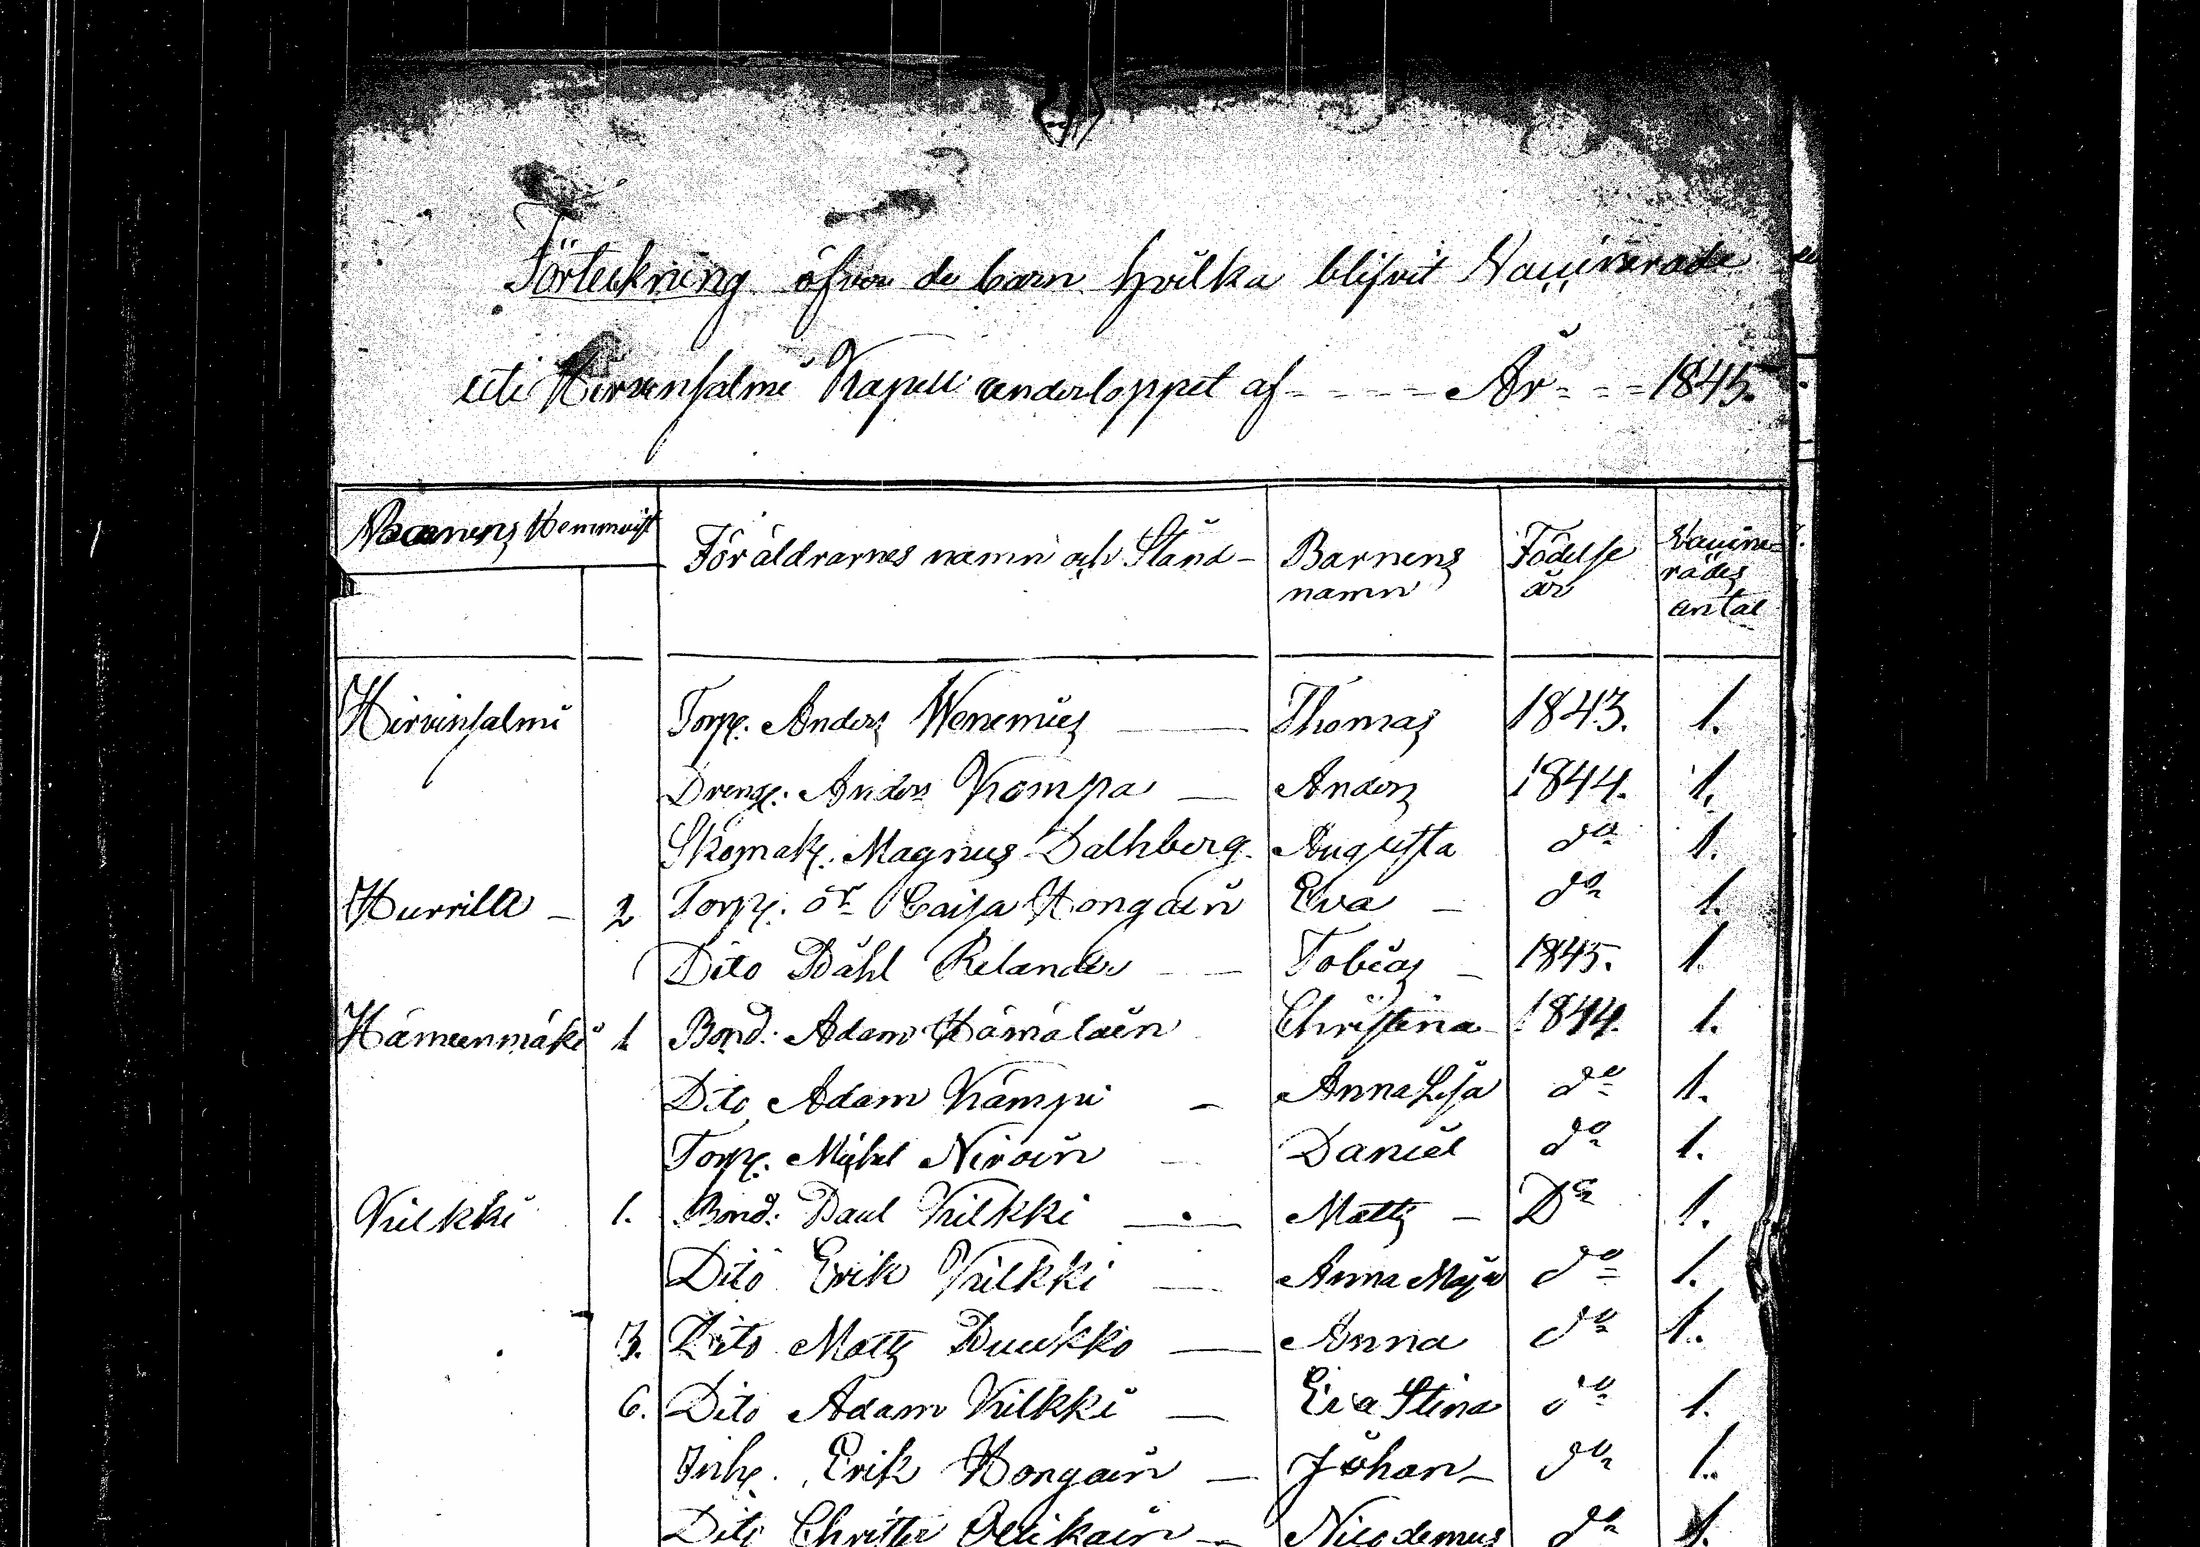 Förteckning öfver de barn hvilka blifvit Vaccinerade
uti Hirvensalmi Kapell underloppet af - - - - År - - - 1845.
Barnens Hemmvist
Föräldrarnes namn och Stånd -
Barnens namn
Födelse år
Vaccine- rades antal
Hirvensalmi Torp. Anders Wenemies — Thomas 1843. 1.
Dreng. Anders Kompa — Anders 1844. 1.
Skomak. Magnus Dalhberg. Augusta do 1.
Hurrilla — 2 Torp. Caisa Hongain Eva — do 1.
Dito Påhl Relander — Tobias — 1845. 1.
Hämeenmäki 1 Bond. Adam Hämäläin Christina 1844. 1.
Dito Adam Kämpi — Anna Lisa do 1.
Torp. Michel Niroin — Daniel do 1.
Kilkki 1. Bond. Paul Kilkki — Matts — Do 1.
Dito Erik Kilkki — Anna Maja do 1.
3. Dito Matts Puukko — Anna do 1.
6. Dito Adam Kilkki — Eva Stina do 1.
Inh. Erik Hongain — Johan — do 1.
Dito Christer — Nicodemus do 1.